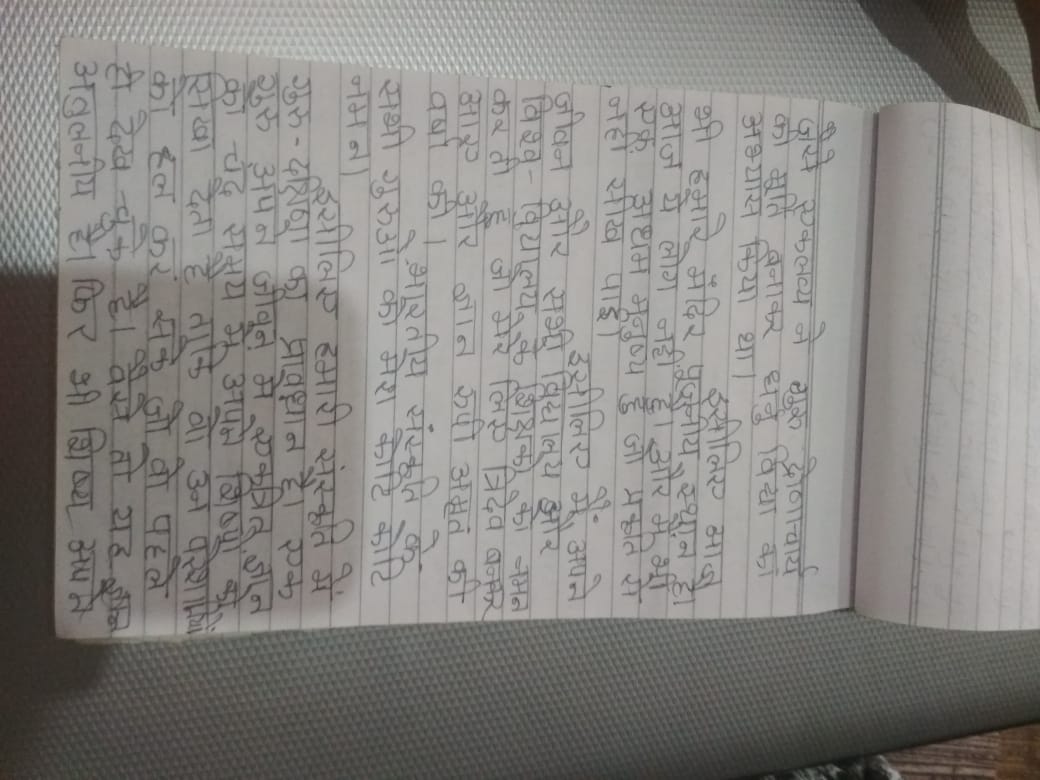 जैसे एकलव्य ने गुरु द्रोणाचार्य
की मूर्ति बनाकर धनु विद्या का
अभ्यास किया था।
इसीलिए आज
भी हमारे मंदिर पुज्यनीय स्थान है।
आज ये लोग नहीं है। और मैं भी
एक अधम मनुष्य हूँ जो प्रकृति से
नही सीख पाई।
इसीलिए मैं अपने
जीवन और सभी विद्यालय और
विश्व-विद्यालय के शिक्षक को नमन
करती हूँ जो मेरे लिए त्रिदेव बनकर
आए और ज्ञान रूपी अमृत की
वर्षा की।
भारतीय संस्कृति के
सभी गुरुओं को मेरा कोटि कोटि
नमन।
इसीलिए हमारी संस्कृति में
गुरु-दक्षिणा का प्रावधान है। एक
गुरु अपने जीवन में एकत्रित ज्ञान
को चंद समय में अपने शिष्यों को
सिखा देता है ताकि वो उन परेशानियों
को हल कर सके जो वो पहले
ही देख चुके है। वैसे तो यह ज्ञान
अतुलनीय है। फिर भी शिष्य अपने